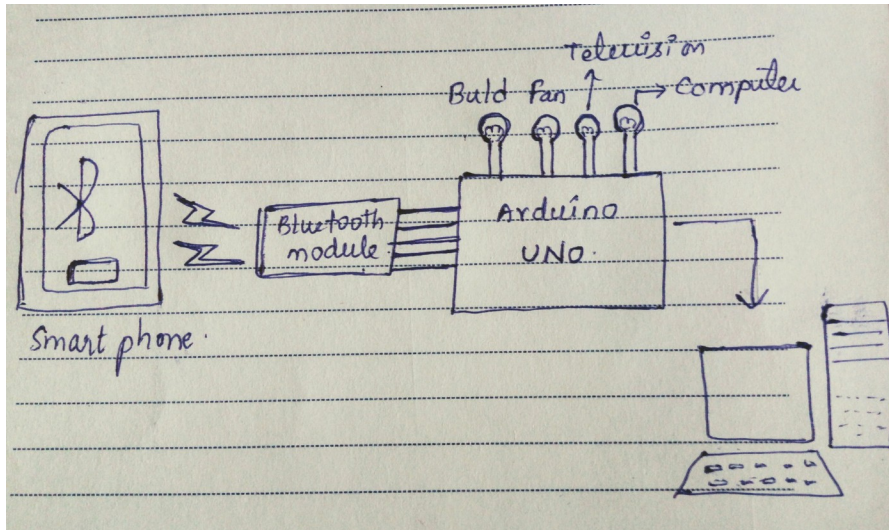 Television
Buld fan → Computer
Bluetooth
module
Arduino
UNO.
Smart phone.